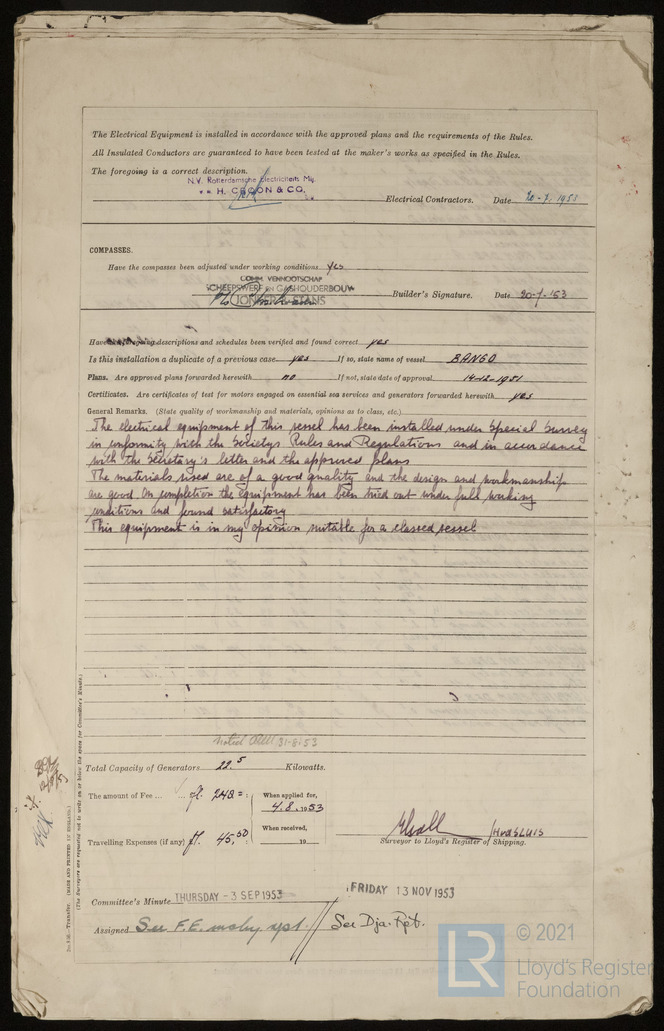 The Electrical Equipment is installed in accordance with the approved plans and the requirements of the Rules.
All Insulated Conductors are guaranteed to have been tested at the maker's works as specified in the Rules.
The foregoing is a correct description.
N.V. Rotterdamsche Electriciteits Mij.
H. CROON & CO.
Electrical Contractors. Date 20-7.1953
COMPASSES.
Have the compasses been adjusted under working conditions yes
COMM. VENNOOTSCHAP
SCHEEPSWERF EN GASHOUDERBOUW
JONKER & STANS
Builder's Signature. Date 20-7-'53
Have the foregoing descriptions and schedules been verified and found correct yes
Is this installation a duplicate of a previous case yes If so, state name of vessel BANGO
Plans. Are approved plans forwarded herewith no If not, state date of approval 14-12-1951
Certificates. Are certificates of test for motors engaged on essential sea services and generators forwarded herewith yes
General Remarks. (State quality of workmanship and materials, opinions as to class, etc.)
The electrical equipment of this vessel has been installed under Special Survey
in conformity with the Societys Rules and Regulations and in accordance
with the Secretary's letter and the approved plans
The materials used are of a good quality and the design and workmanship
are good. On completion the equipment has been tried out under full working
conditions and found satisfactory
This equipment is in my opinion suitable for a classed vessel
Noted 31-8-53
Total Capacity of Generators 22.5 Kilowatts.
The amount of Fee ... fl. 248 = : When applied for, 4.8.1953
Travelling Expenses (if any) fl. 45,50 : When received, 19
H vd SLUIS
Surveyor to Lloyd's Register of Shipping.
Committee's Minute THURSDAY - 3 SEP 1953
FRIDAY 13 NOV 1953
Assigned See F.E. mchy rpt. See Dja. Rpt.
(The Surveyors are requested not to write on or below the space for Committee's Minute.)
(MADE AND PRINTED IN ENGLAND.)
LR
© 2021
Lloyd's Register
Foundation